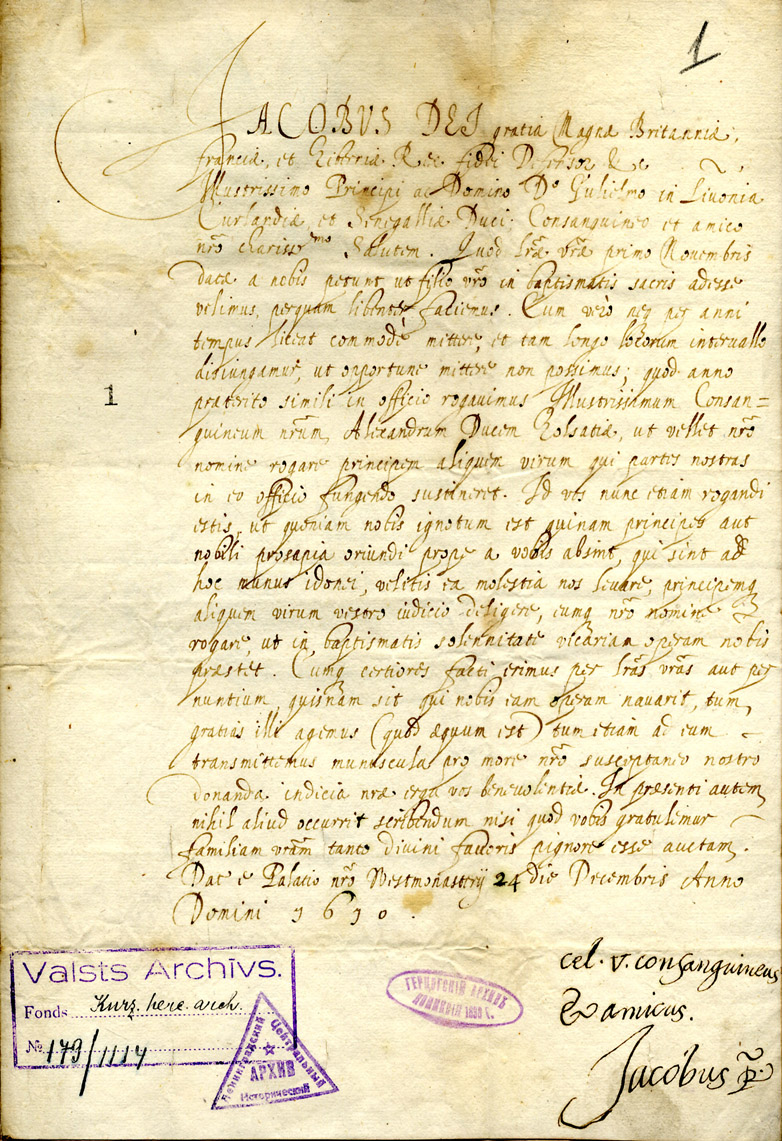 1
JACOBUS DEJ gratia Magnæ Britanniæ,
franciæ, et Hiberniæ Rex fidei Defensor &c
Illustrissimo Principi ac Domino Dº Gulielmo in Livonia
Curlandiæ et Senegalliæ Duci; Consanguineo et amico
nrõ charissᵐᵒ Salutem. Quod lrãe vrãe primo Novembris
datæ a nobis petunt ut filio vrõ in baptismatis sacris adesse
velimus, perquam libenter faciemus. Cum verò neq per anni
tempus liceat commodè mittere, et tam longo locorum intervallo
disiungamur, ut opportune mittere non possimus; quod anno
præterito simili in officio rogavimus Illustrissimum Consan=
1
guineum nrũm, Alexandrum Ducem Holsatiæ, ut vellet nrõ
nomine rogare principem aliquem virum qui partes nostras
in eo officio fungendo sustineret. Id vos nunc etiam rogandi
estis, ut quoniam nobis ignotum est quinam principes aut
nobili prosapia oriundi prope a vobis absint, qui sint ad
hoc munus idonei, velitis ea molestia nos levare, principemq
aliquem virum vestro iudicio deligere, eumq nrõ nomine
rogare, ut in baptismatis solennitate vicariam operam nobis
præstet. Cumq certiores facti erimus per lrãs vrãs aut per
nuntium, quisnam sit qui nobis eam operam navarit, tum
gratias illi agemus (quod æquum est) tum etiam ad eum
transmittemus munuscula pro more nrõ susceptaneo nostro
donanda indicia nræ erga vos benevolentiæ. In præsenti autem
nihil aliud occurrit scribendum nisi quod vobis gratulemur
familiam vrãm tanto divini favoris pignore esse auctam.
Dat e Palatio nrõ Westmonasterij 24 die Decembris Anno
Domini 1610.
cel. v. consanguineus
& amicus.
Jacobus R.
Valsts Archīvs.
Fonds Kurz. herc. arch.
№ 179/1114
Ленинградский Центральный
АРХИВ
Исторический
ГЕРЦОГСКІЙ АРХИВЪ
1899 г.